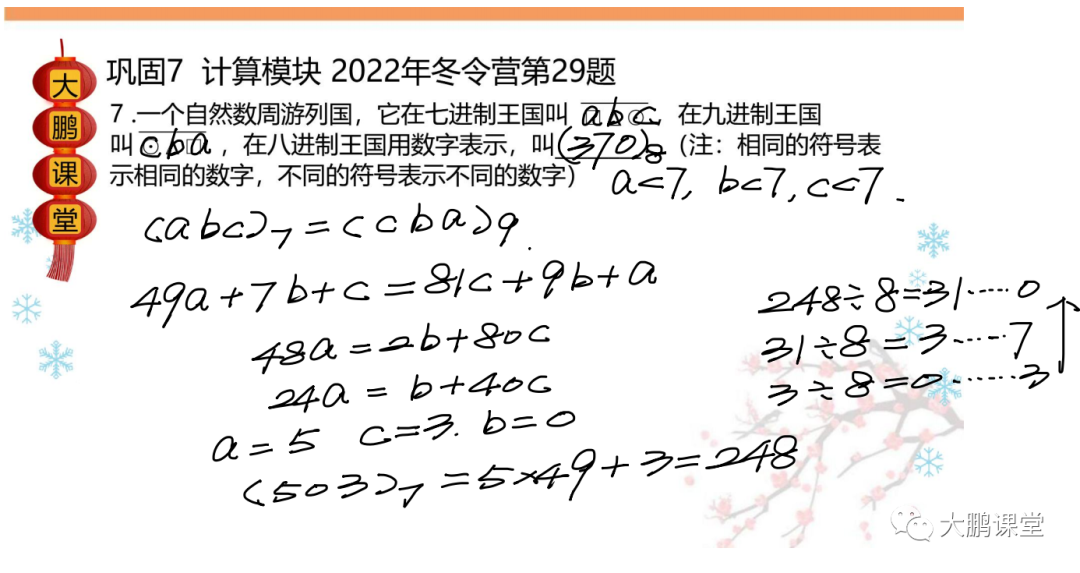 大鹏课堂
巩固7 计算模块 2022年冬令营第29题
7 .一个自然数周游列国，它在七进制王国叫 abc，在九进制王国
叫 cba ，在八进制王国用数字表示，叫(370)8（注：相同的符号表
示相同的数字，不同的符号表示不同的数字） a<7, b<7, c<7 .
(abc)7 = (cba)9.
49a+7b+c=81c+9b+a
48a=2b+80c
24a = b+40c
a=5 c=3. b=0
(503)7=5×49+3=248
248÷8=31……0
31÷8=3……7
3÷8=0……3
大鹏课堂